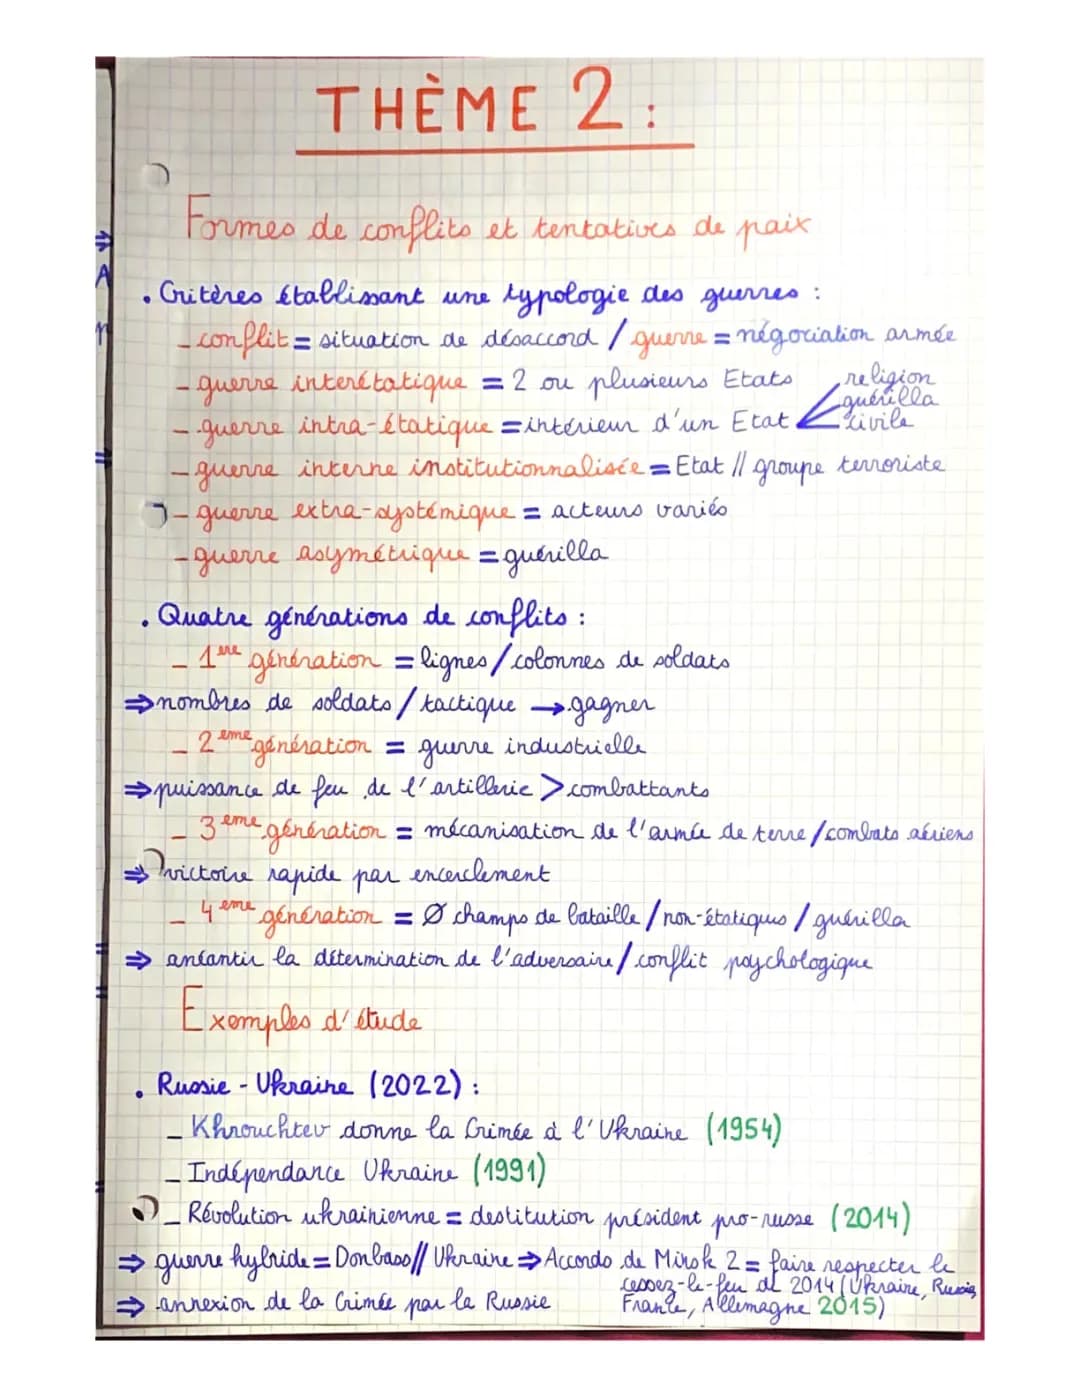 THÈME 2 :
Formes de conflits et tentatives de paix
. Critères établissant une typologie des guerres :
- conflit = situation de désaccord / guerre = négociation armée
- guerre interétatique = 2 ou plusieurs Etats
religion
guérilla
civile
- guerre intra-étatique = intérieur d'un Etat
- guerre interne institutionnalisée = Etat // groupe terroriste
- guerre extra-systémique = acteurs variés
- guerre asymétrique = guérilla
. Quatre générations de conflits :
- 1ère génération = lignes / colonnes de soldats
⇒ nombres de soldats / tactique → gagner
- 2eme génération = guerre industrielle
⇒ puissance de feu de l'artillerie > combattants
- 3eme génération = mécanisation de l'armée de terre / combats aériens
⇒ victoire rapide par encerclement
- 4eme génération = Ø champs de bataille / non-étatiques / guérilla
⇒ anéantir la détermination de l'adversaire / conflit psychologique
Exemples d'étude
. Russie - Ukraine (2022) :
- Khrouchtev donne la Crimée à l'Ukraine (1954)
- Indépendance Ukraine (1991)
- Révolution ukrainienne = destitution président pro-russe (2014)
⇒ guerre hybride = Donbass // Ukraine ⇒ Accords de Minsk 2 = faire respecter le
cessez-le-feu de 2014 (Ukraine, Russie,
France, Allemagne 2015)
⇒ annexion de la Crimée par la Russie